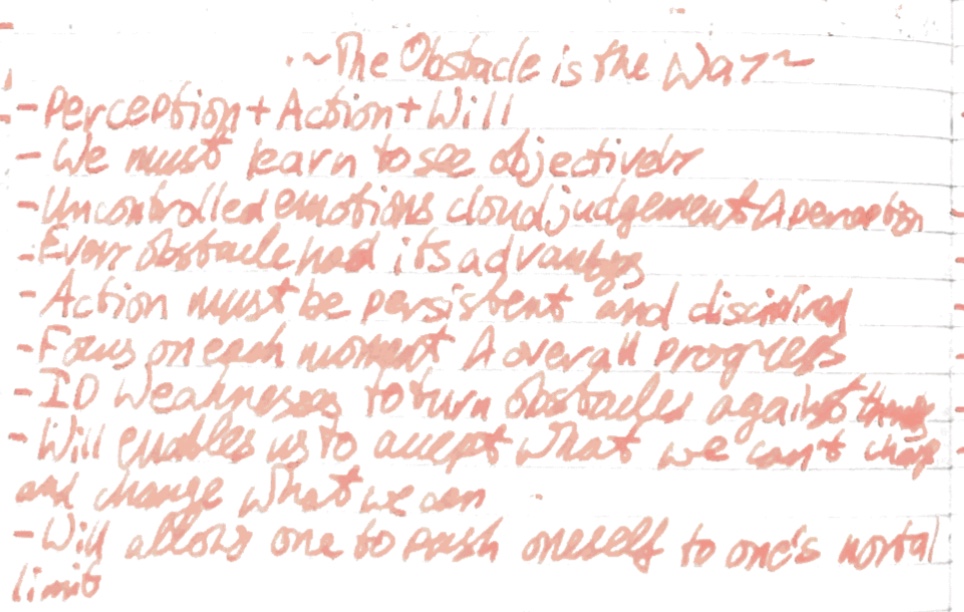 ~The Obstacle is the Way~
- Perception + Action + Will
- We must learn to see objectively
- Uncontrolled emotions cloud judgement & perception
- Every obstacle had its advantages
- Action must be persistent and disciplined
- Focus on each moment & overall progress
- ID weaknesses to turn obstacles against
- Will enables us to accept what we can't change
and change what we can
- Will allows one to push oneself to one's mortal
limit